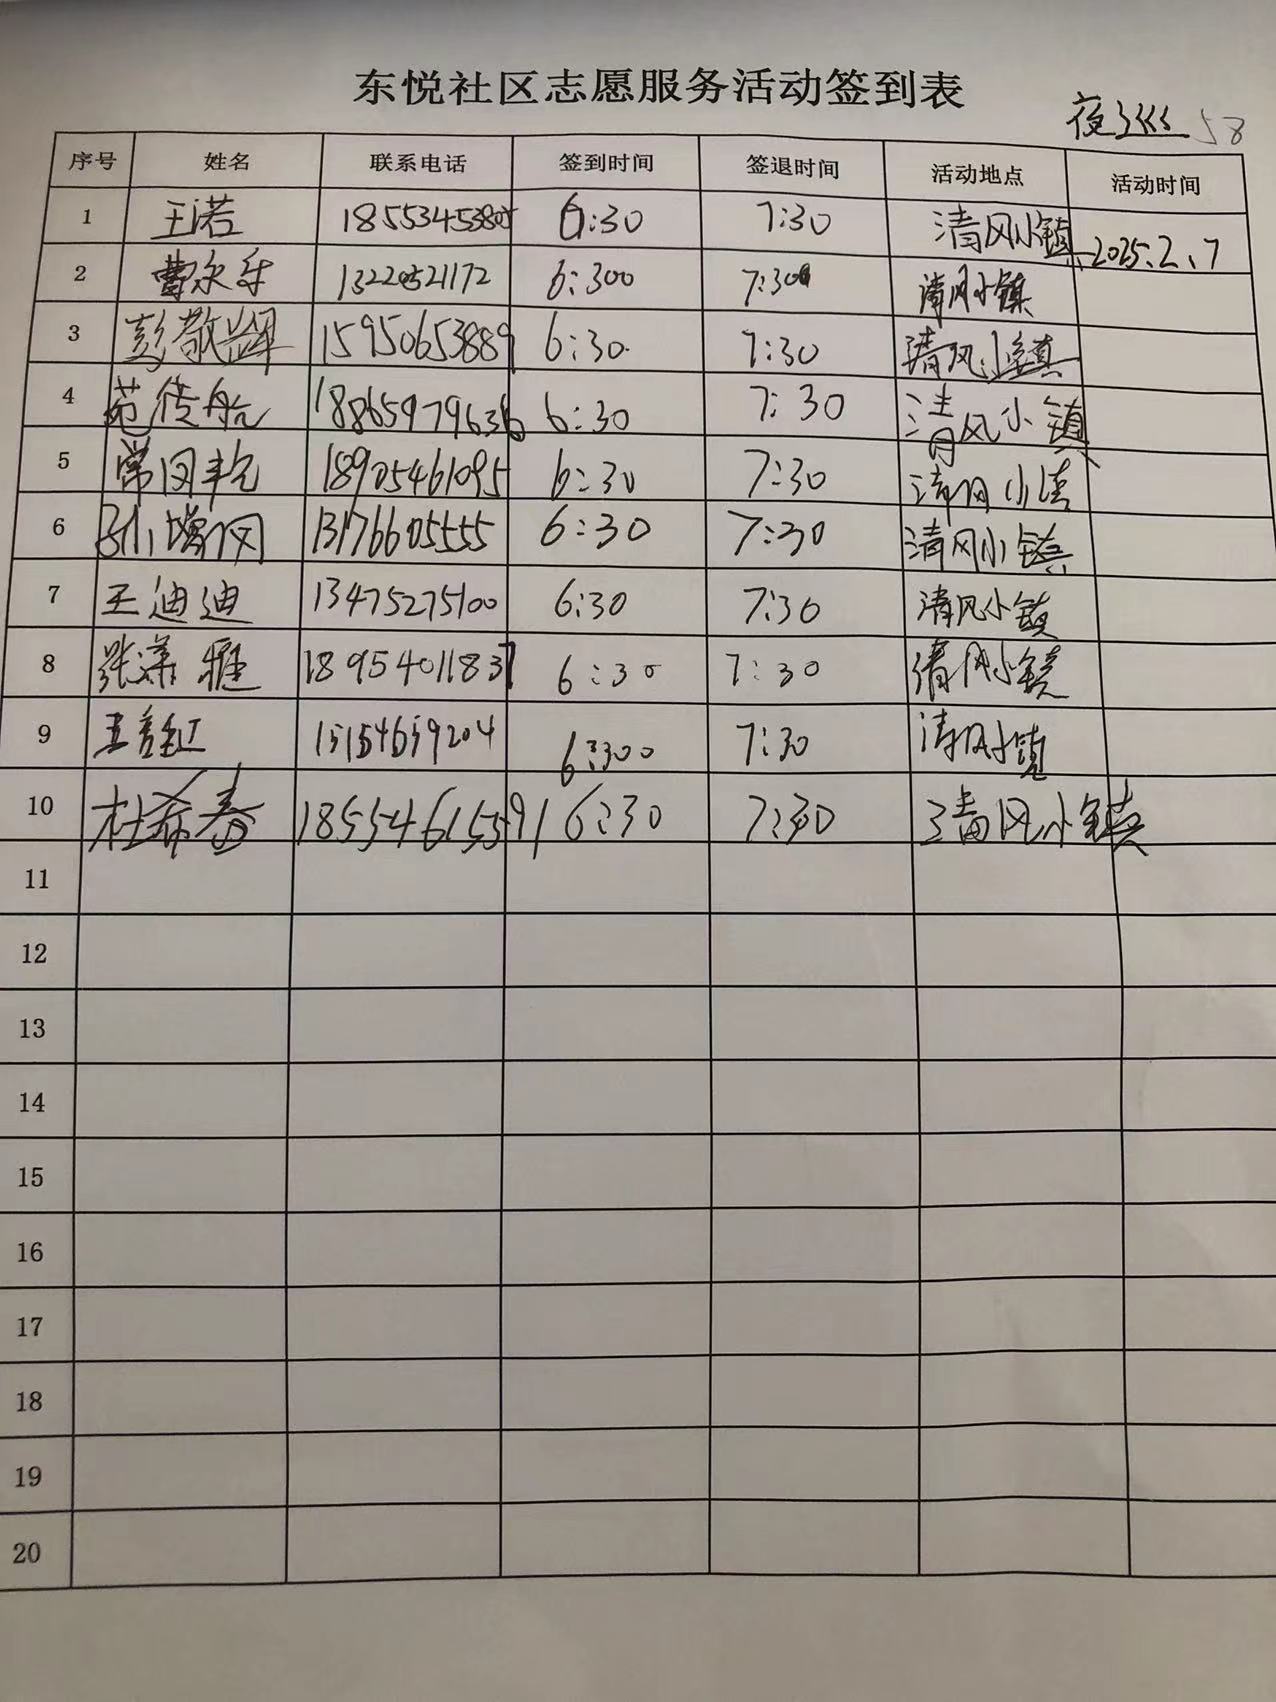 东悦社区志愿服务活动签到表
夜巡 58
序号 姓名 联系电话 签到时间 签退时间 活动地点 活动时间
1 王诺 18553453805 6:30 7:30 清风小镇 2025.2.7
2 曹永乐 13220521172 6:300 7:300 清风小镇
3 彭敬辉 15950653889 6:30 7:30 清风小镇
4 范传航 18865979636 6:30 7:30 清风小镇
5 常 18905461095 6:30 7:30 清风小镇
6 孙增 13176605555 6:30 7:30 清风小镇
7 王迪迪 13475275100 6:30 7:30 清风小镇
8 张潇雅 18954011837 6:30 7:30 清风小镇
9 15154659204 6:300 7:30 清风小镇
10 杜希春 18554615591 6:30 7:30 清风小镇
11
12
13
14
15
16
17
18
19
20